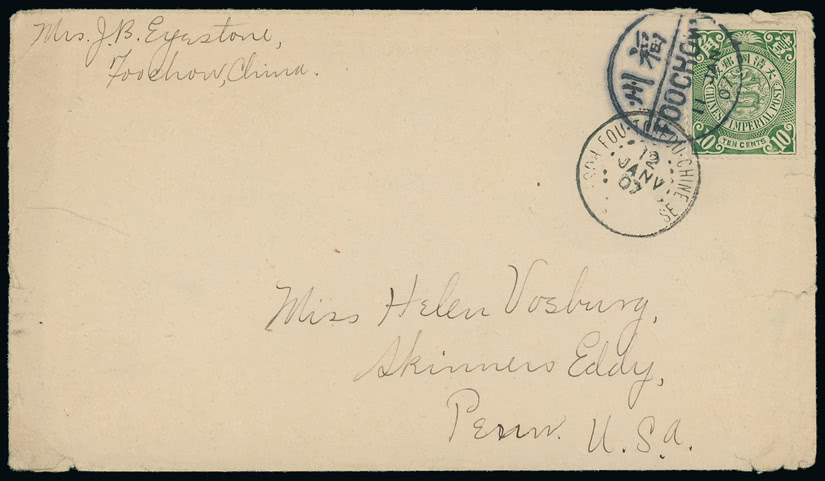 Mrs. J. B. Eyestone,
Foochow, China.
福州
FOOCHOW
大清國郵政
CHINESE IMPERIAL POST
10 TEN CENTS 10
FOU-TCHEOU-CHINE
12
JANV
07
Miss Helen Vosburg,
Skinners Eddy,
Penn. U.S.A.